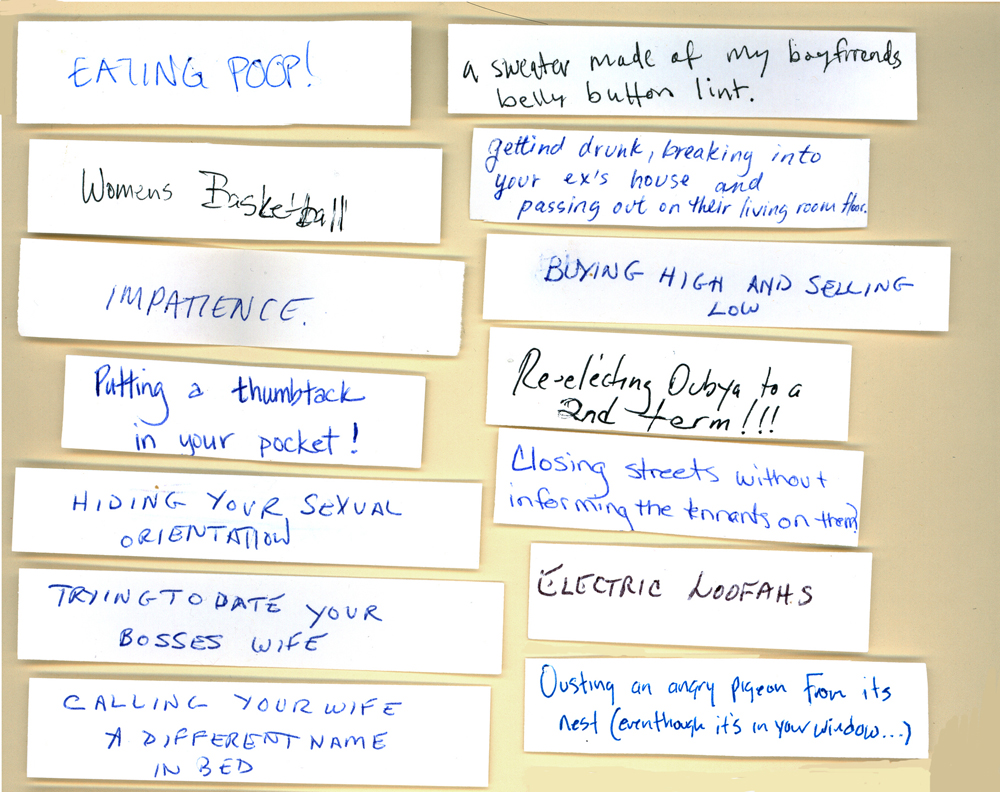 EATING POOP!
Womens Basketball
IMPATIENCE.
Putting a thumbtack
in your pocket!
HIDING YOUR SEXUAL
ORIENTATION
TRYING TO DATE YOUR
BOSSES WIFE
CALLING YOUR WIFE
A DIFFERENT NAME
IN BED
a sweater made of my boyfriends
belly button lint.
gettind drunk, breaking into
your ex's house and
passing out on their living room floor.
BUYING HIGH AND SELLING
LOW
Re-electing Dubya to a
2nd term!!!
Closing streets without
informing the tennants on them?
ELECTRIC LOOFAHS
Ousting an angry pigeon from its
nest (eventhough it's in your window...)